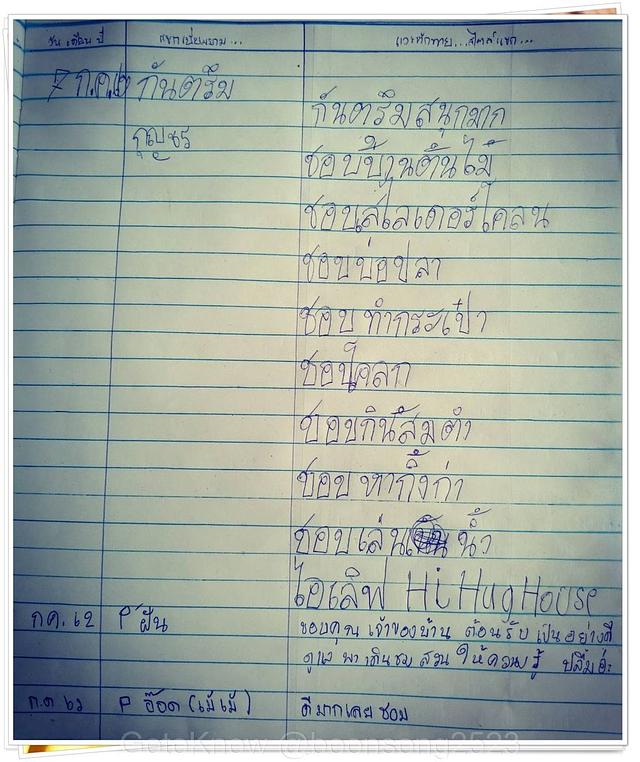 วัน เดือน ปี แขกเยี่ยมยาม... แวะทักทาย...สไตล์แขก...
7 ก.ค.62 กันตรึม
กันตรึมสนุกมาก
กุญชร
ชอบบ้านต้นไม้
ชอบสไลเดอร์โคลน
ชอบบ่อปลา
ชอบ ทำกระเป๋า
ชอบ
ชอบกินส้มตำ
ชอบ หากิ้งก่า
ชอบเล่น น้ำ
ไอเลิฟ Hi Hug House
กค. 62 P'ฝัน ขอบคุณ เจ้าของบ้าน ต้อนรับ เป็นอย่างดี
ดูแล พาเดินชม สวน ให้ความรู้ ปลื้มอ่ะ
ก.ค 62 P อ๊อด (เม้เม้) ดีมากเลย ชอบ
GotoKnow @boonsong2523